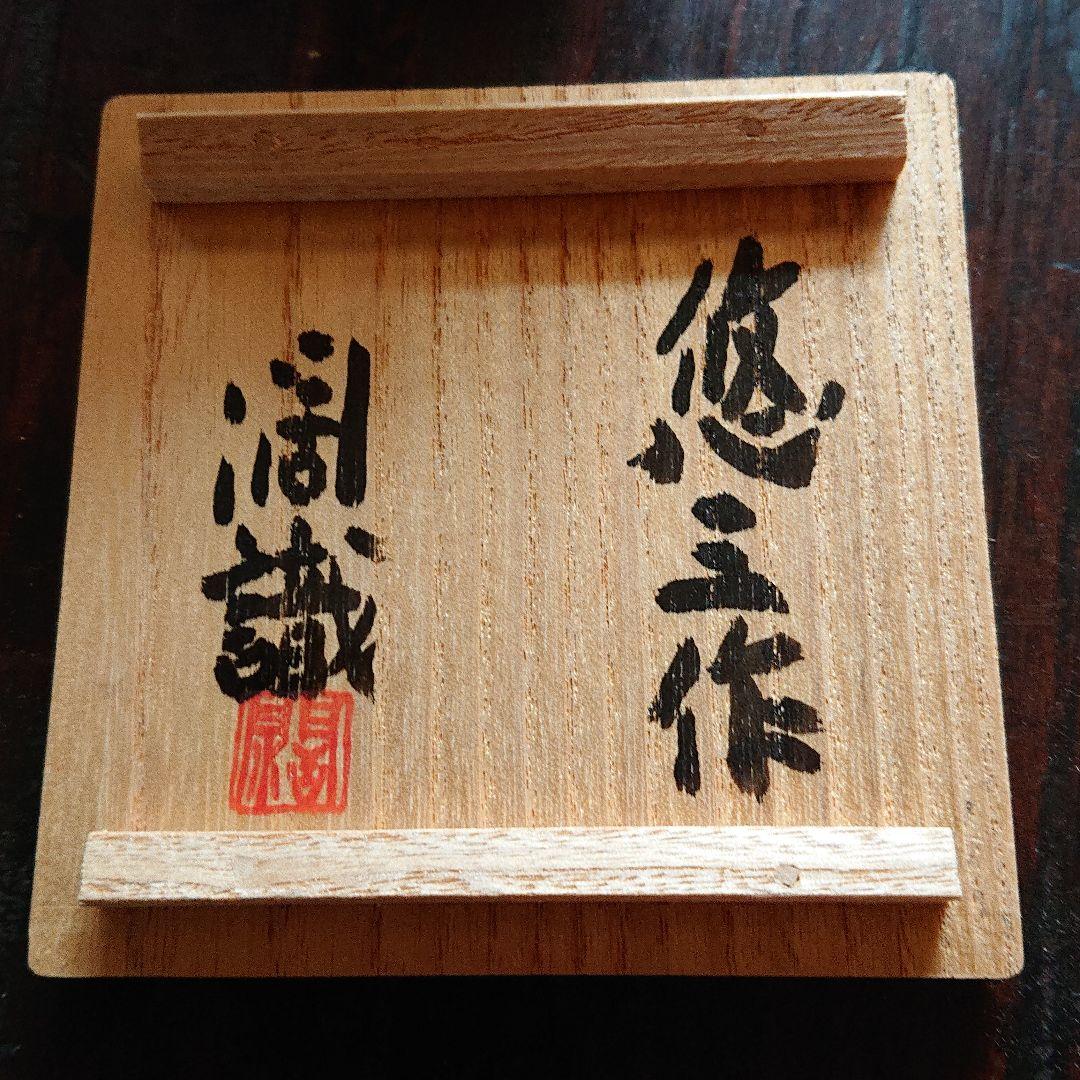 悠三作
闊識